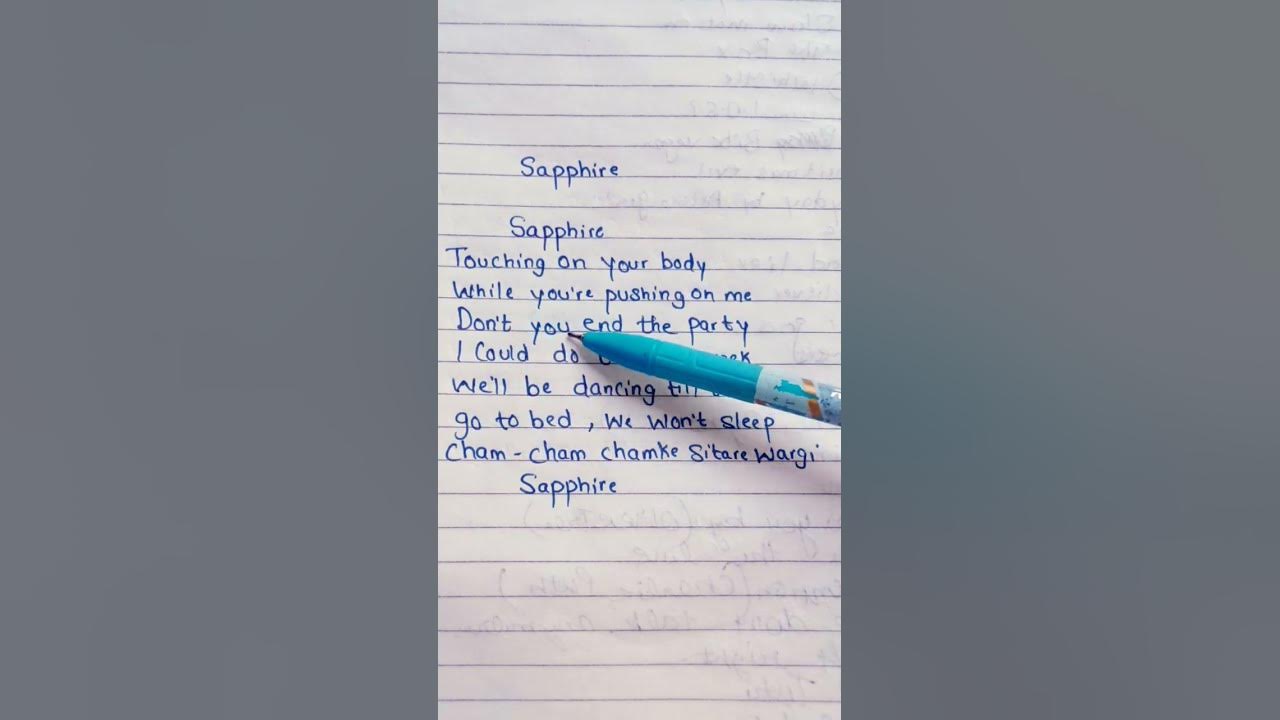 Sapphire
Sapphire
Touching on your body
While you're pushing on me
Don't you end the party
I Could do
We'll be dancing till
go to bed, We Won't Sleep
Cham - Cham chamke Sitare Wargi
Sapphire